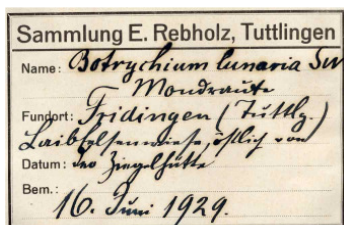 Sammlung E. Rebholz, Tuttlingen
Name: Botrychium lunaria Sw
Mondraute
Fundort: Fridingen (Tuttlg.)
Laibfelsenwiese, östlich von
Datum: der Ziegelhütte
Bem.:
16. Juni 1929.